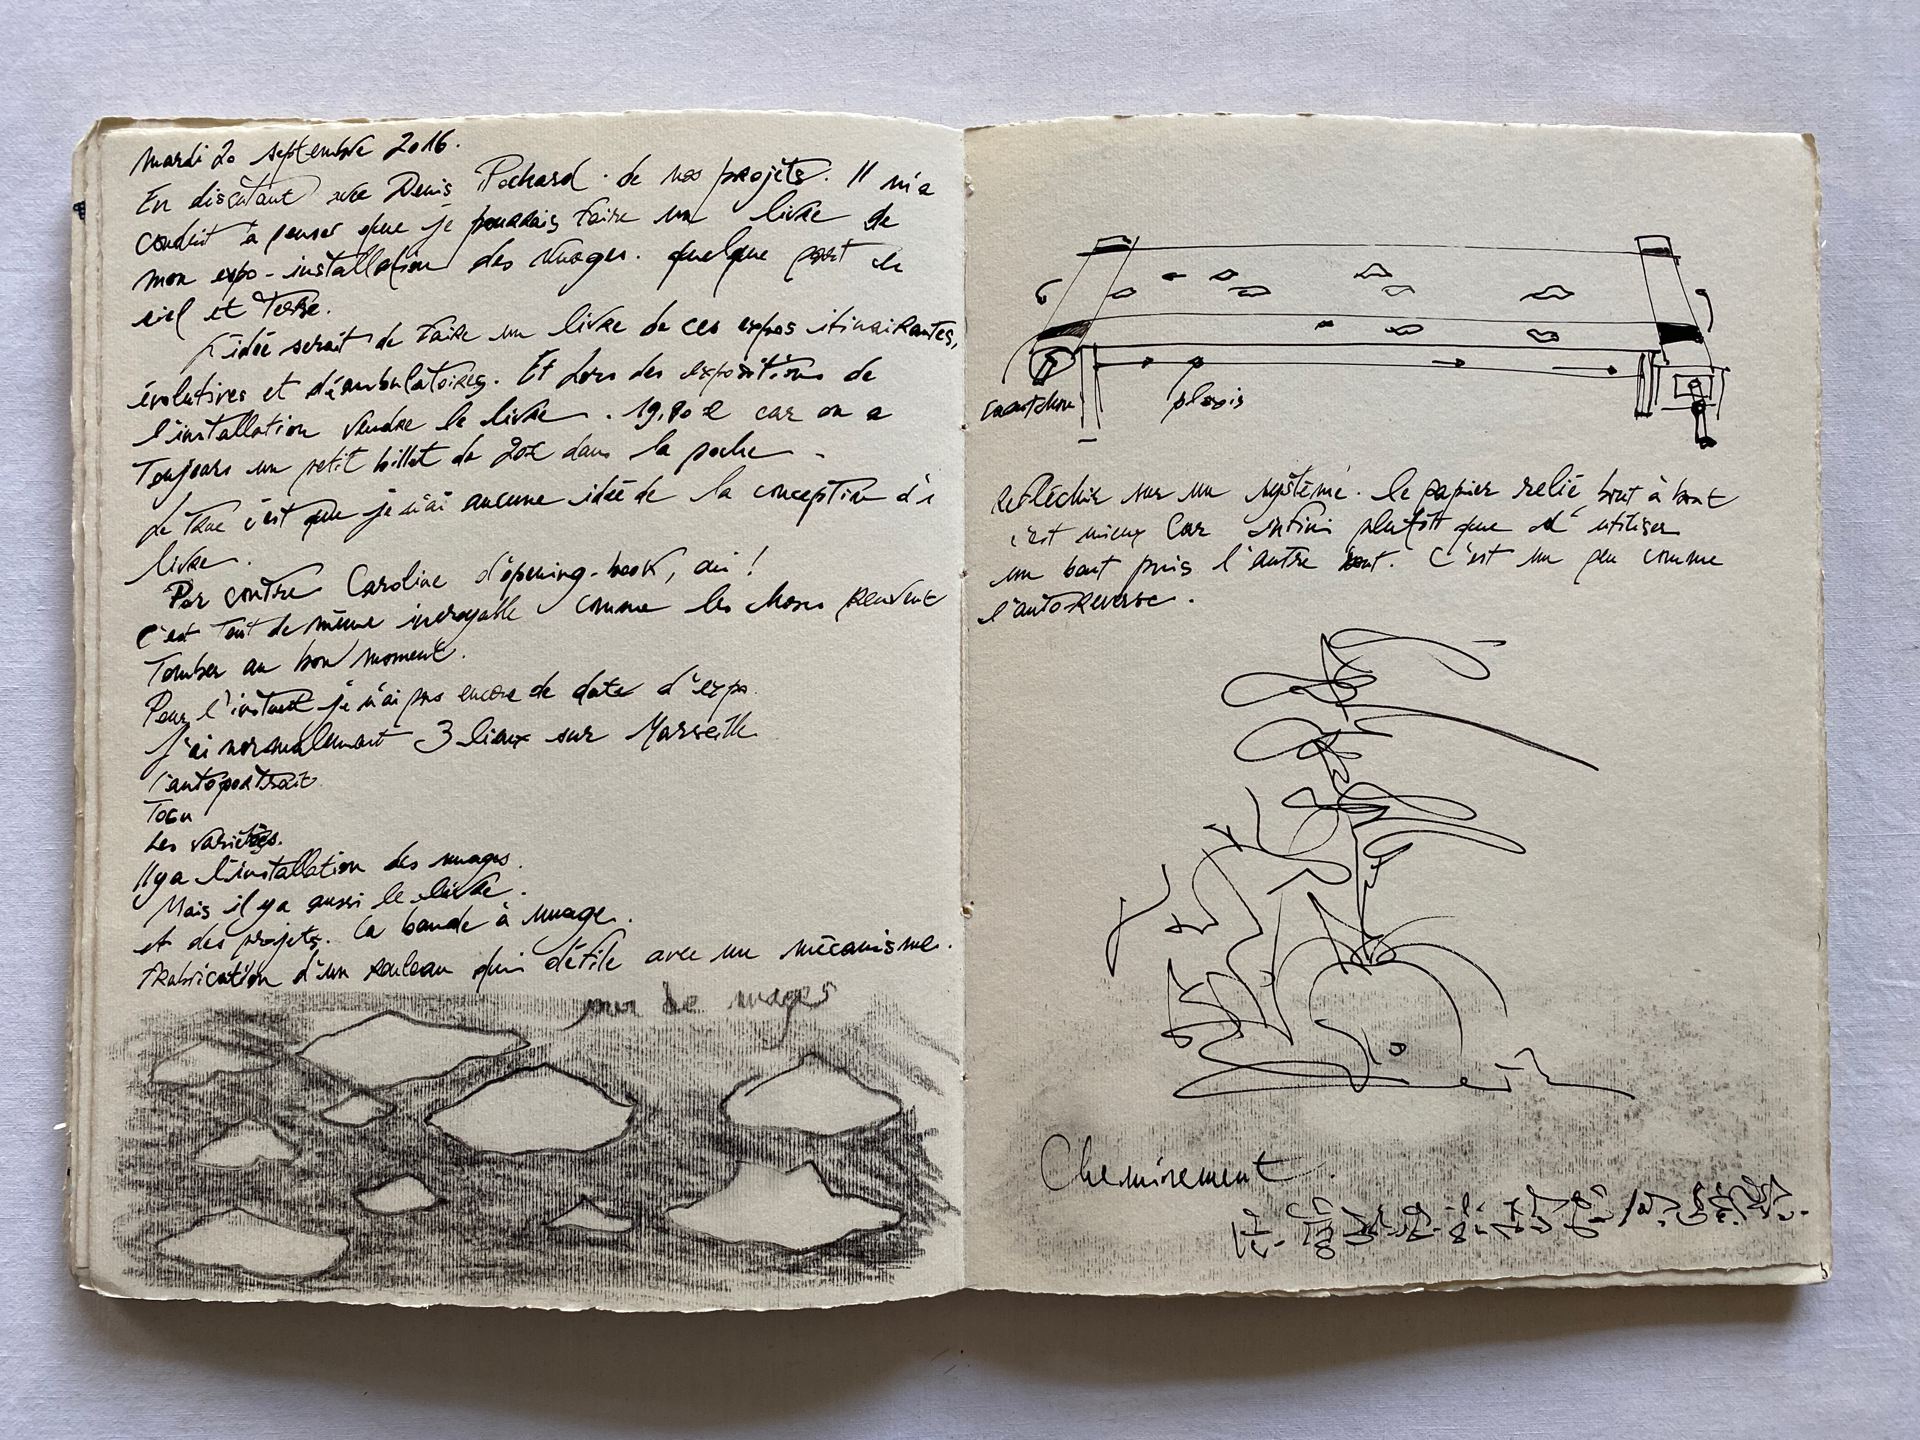 mardi 20 septembre 2016.
En discutant avec Denis Pochard de nos projets. Il m'a
conduit à penser que je pourrais faire un livre de
mon expo-installation des nuages. quelque part entre
ciel et Terre.
L'idée serait de faire un livre de ces expos itinairantes,
évolutives et déambulatoires. Et lors des expositions de
l'installation vendre le livre. 19,80 € car on a
Toujours un petit billet de 20€ dans la poche.
Le truc c'est que je n'ai aucune idée de la conception d'1
livre.
Par contre Caroline d'opening-book, oui !
C'est Tout de même incroyable comme les choses peuvent
Tomber au bon moment.
Pour l'instant je n'ai pas encore de date d'expo.
J'ai normalement 3 lieux sur Marseille
l'autoportrait
Les variétés.
Il y a l'installation des nuages.
Mais il y a aussi le livre.
et des projets. La bande à nuage.
Fabrication d'un rouleau qui défile avec un mécanisme.
mur de nuages
caoutchouc
plexis
Réfléchir sur un système. le papier relié bout à bout
c'est mieux car infini plutôt que d'utiliser
un bout puis l'autre bout. C'est un peu comme
l'autoreverse.
Cheminement